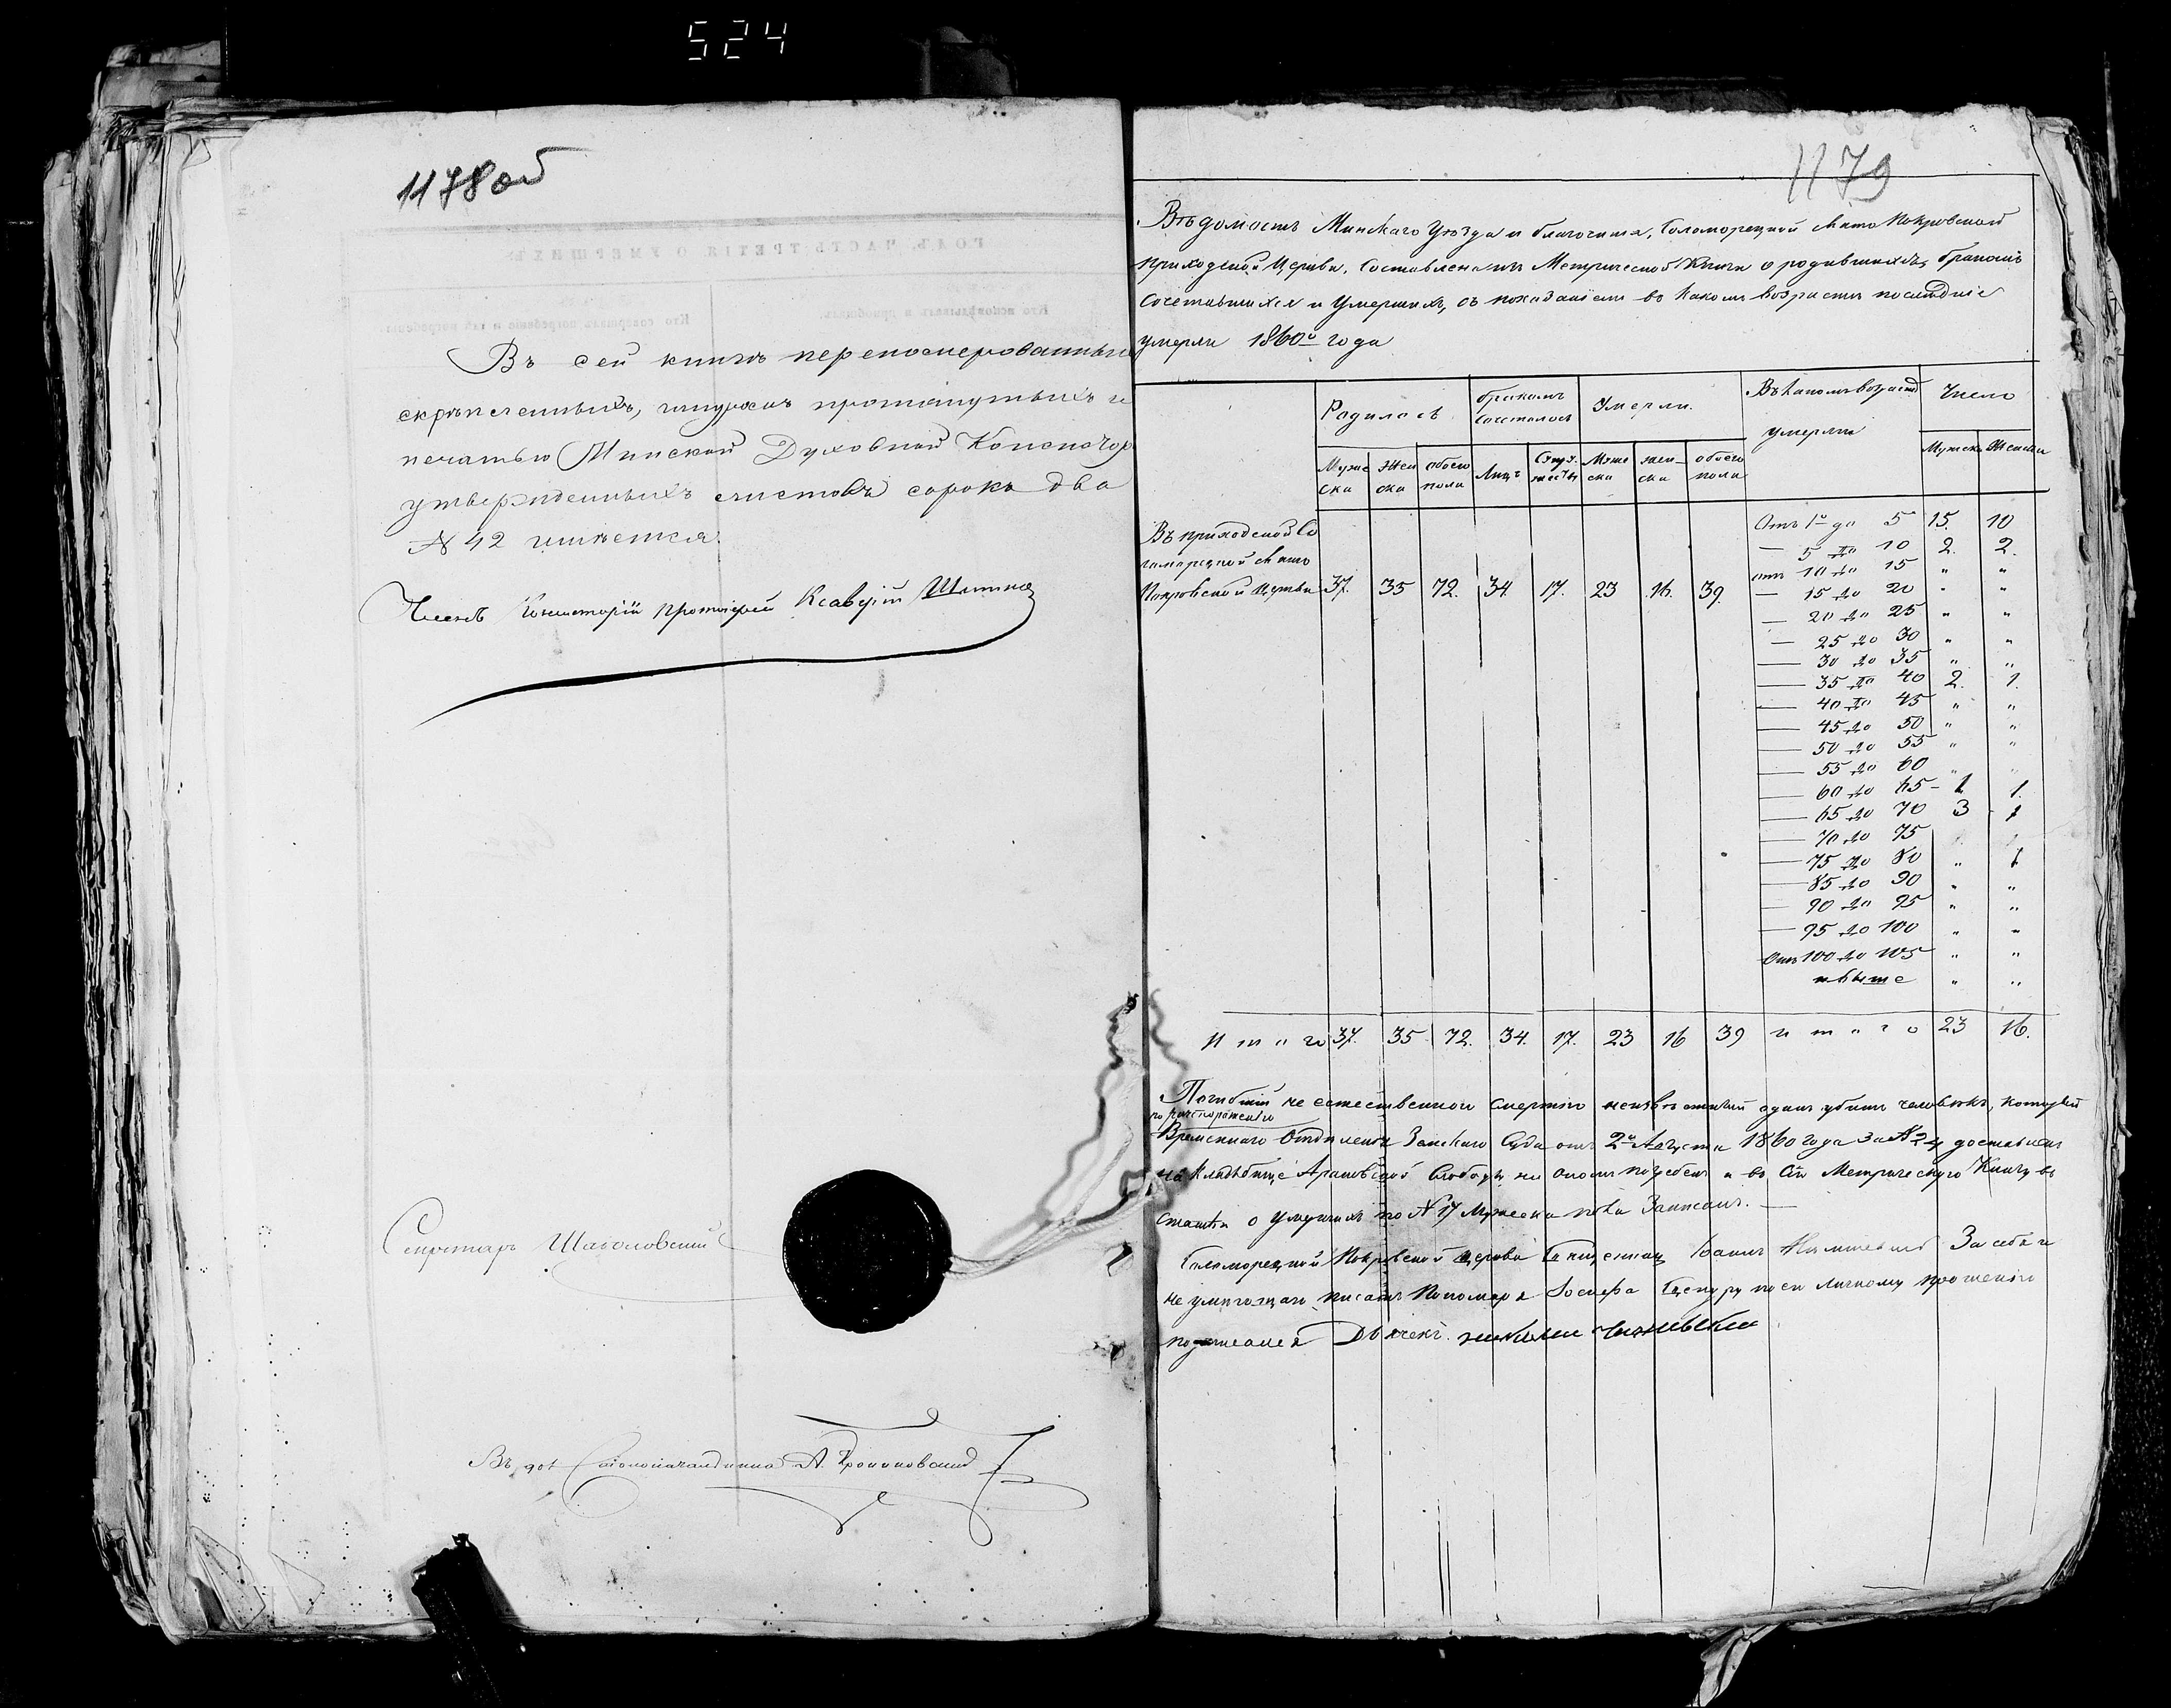 524
1178об
Въ сей книгѣ перенумерованныхъ
скрѣпленныхъ, шнуромъ протянутыхъ и
печатью Минской Духовной Консистор
утвержденныхъ листовъ сорокъ два
№ 42 имѣется.
Членъ Консисторіи протоіерей
Секретарь
Въ дол Столоначальника А.
1179
Вѣдомость Минскаго Уѣзда и благочинія, Соломорецкой Свято Покровской
приходской Церкви, Составленная изъ Метрической Книги о родившихся, бракомъ
Сочетавшихся и Умершихъ, съ показаніемъ въ какомъ возрастѣ послѣдніе
умерли 1860го года
Родилось
бракомъ Сочеталось
Умерли.
Въ какомъ возрастѣ умерли
Число
Муже ска
Жен ска
обоего пола
Лицъ
Муже ска
жен- ска
обоего пола
Мужска
Женска
Въ приходской Со
ломорецкой Свято
Покровской Церкви 37. 35 72. 34. 17. 23 16. 39.
Отъ 1го до 5 15. 10
— 5 до 10 2. 2.
отъ 10 до 15 " "
— 15 до 20 " "
— 20 до 25 " "
— 25 до 30 " "
— 30 до 35 " "
— 35 до 40 2. 1.
— 40 до 45 " "
— 45 до 50 " "
— 50 до 55 " "
— 55 до 60 " "
— 60 до 65 - 1 1.
— 65 до 70 3 1
— 70 до 75
— 75 до 80 " 1
— 85 до 90 " "
— 90 до 95 " "
— 95 до 100 " "
Отъ 100 до 105 " "
и выше " "
Итого 37. 35 72. 34. 17. 23 16 39 итого 23 16.
Погибшій не естественною смертію неизвѣстный одинъ убитъ человѣкъ, который
по распоряженію
Временнаго Отдѣленія Земскаго Суда отъ 2го Августа 1860 года за № доставленъ
на кладбище Слободы на ономъ погребенъ и въ Метрическую Книгу въ
статьи о Умершихъ по № 17 Мужеска пола Записанъ. —
Соломорецкой Покровской церкви Священникъ Іоаннъ За себя и
не умѣющаго писать Пономаря Іосифа по его личному прошенію
подписался Дьячекъ